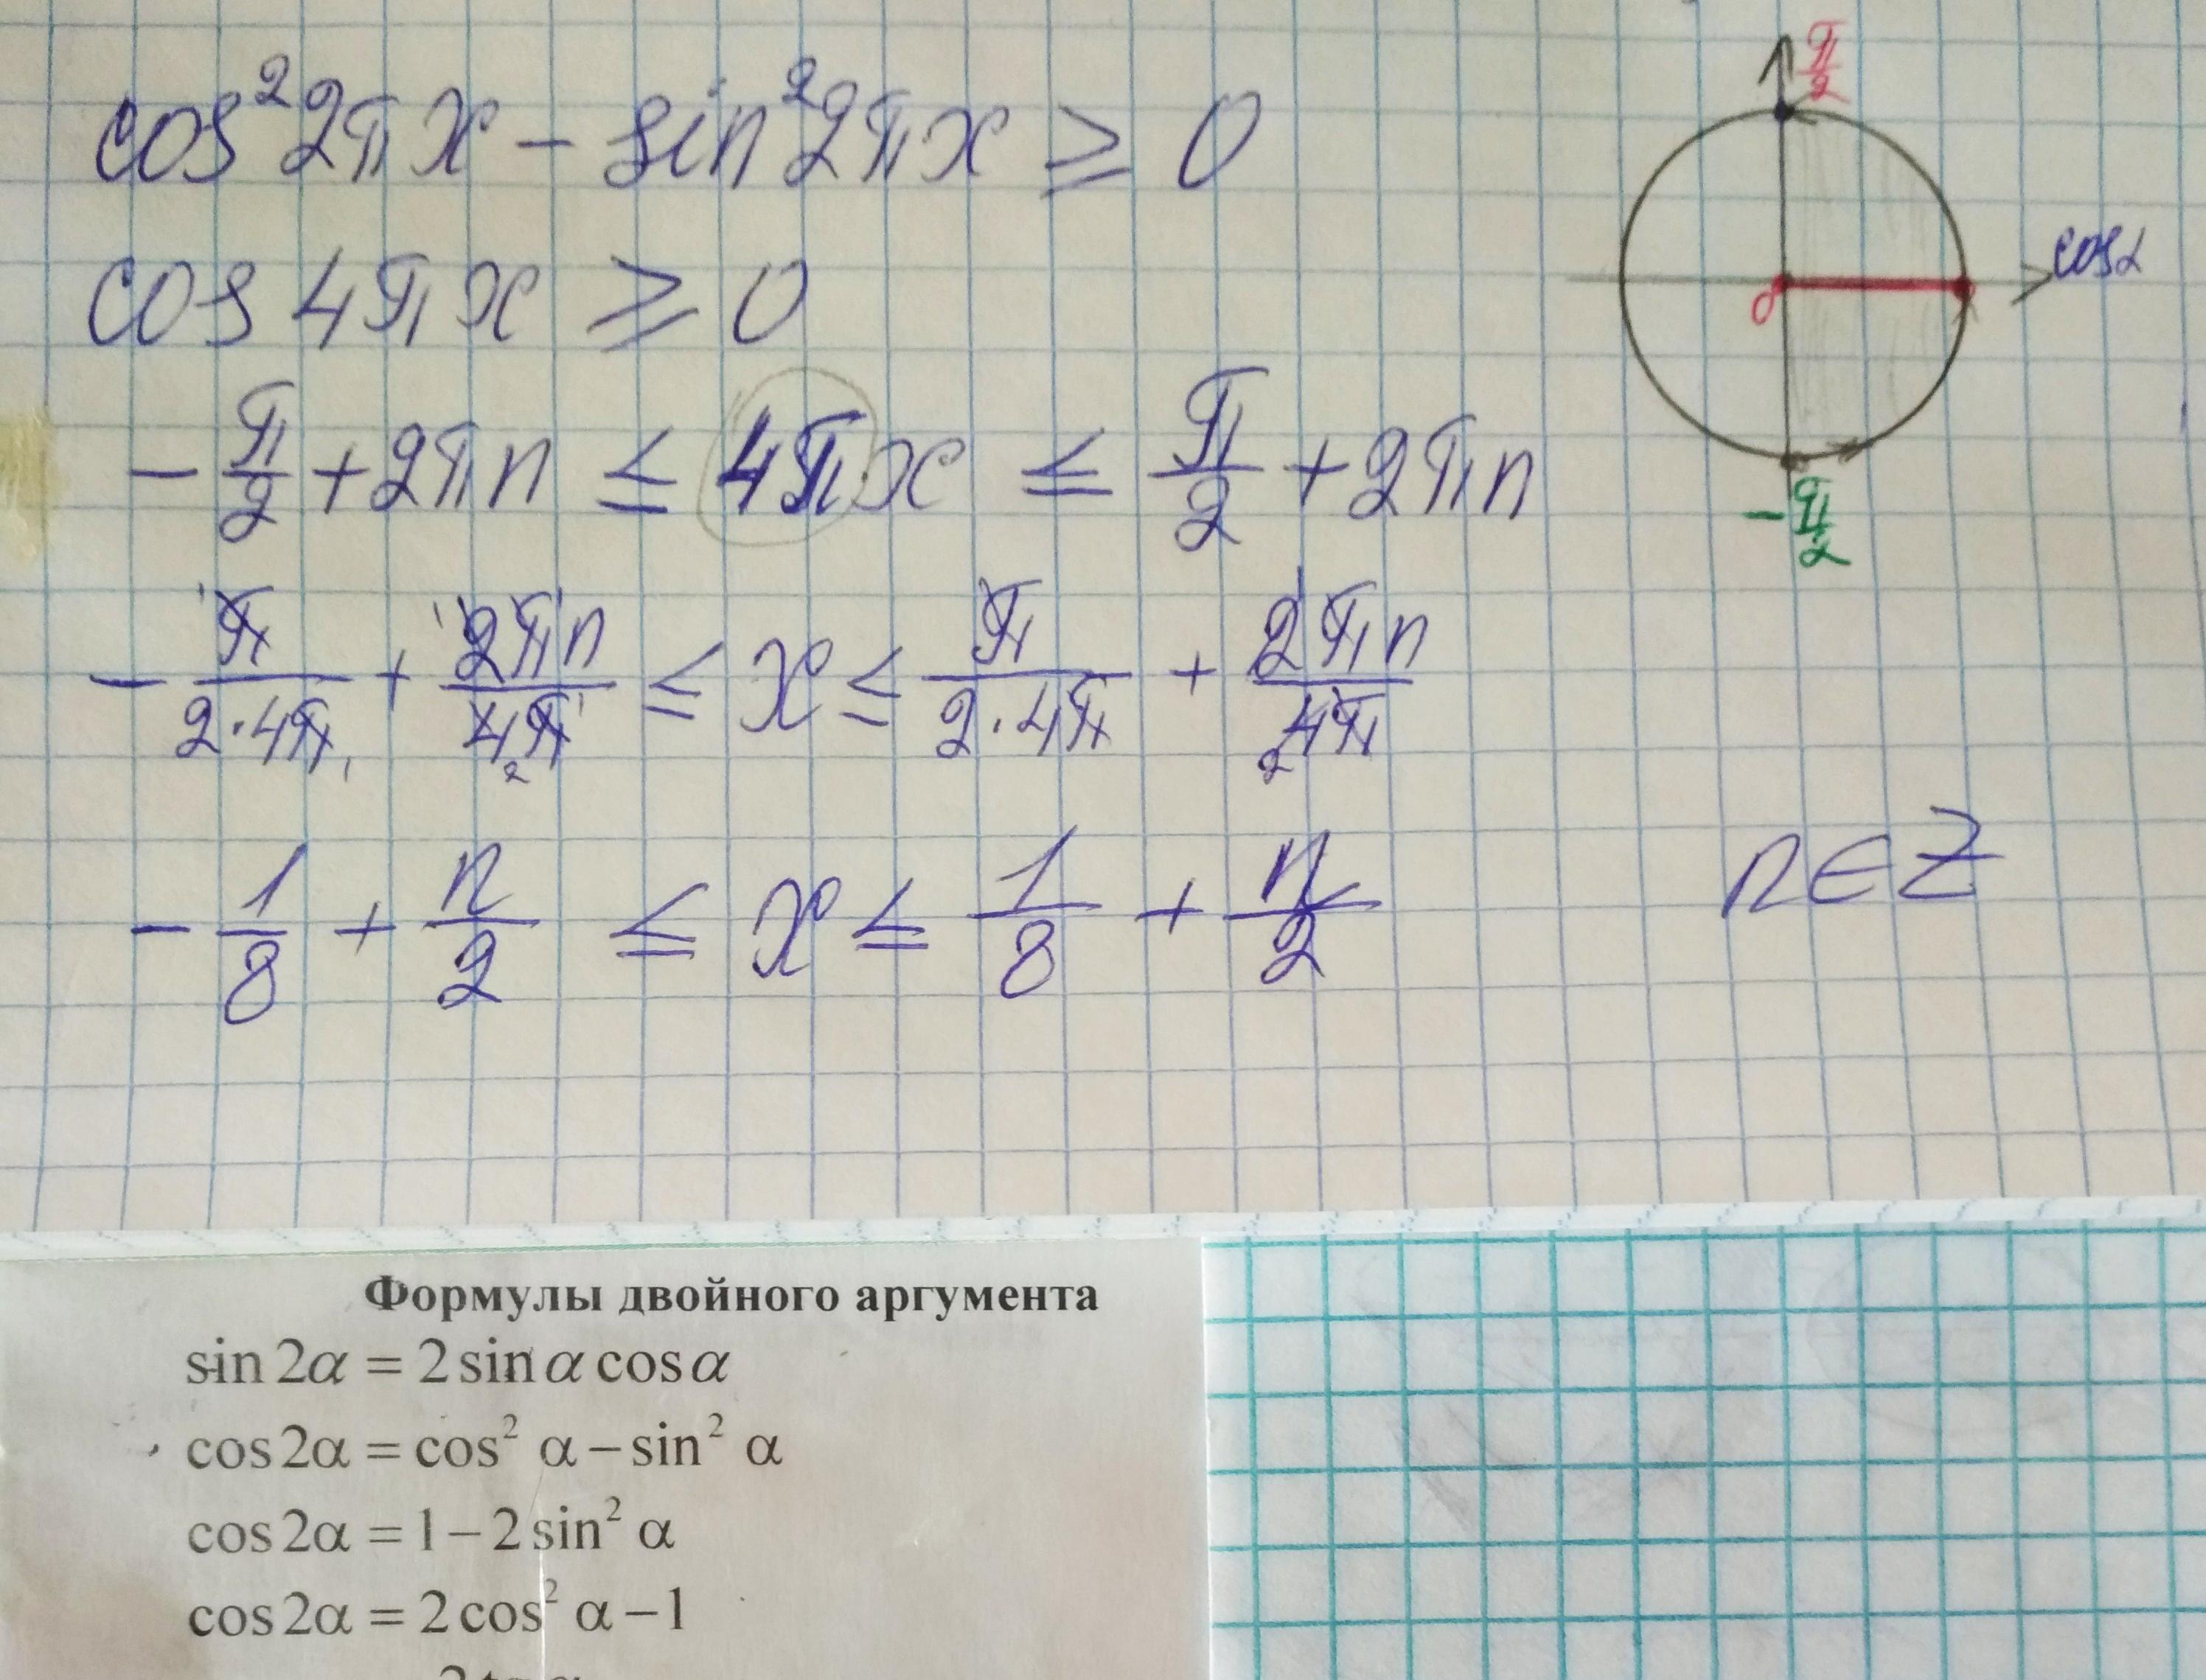 cos²2πx − sin²2πx ≥ 0
cos 4πx ≥ 0
−π/2 + 2πn ≤ 4πx ≤ π/2 + 2πn
−π/(2·4π) + 2πn/(4π) ≤ x ≤ π/(2·4π) + 2πn/(4π)
−1/8 + n/2 ≤ x ≤ 1/8 + n/2
n∈Z
π/2
cosα
0
−π/2
Формулы двойного аргумента
sin 2α = 2 sin α cos α
cos 2α = cos² α − sin² α
cos 2α = 1 − 2 sin² α
cos 2α = 2 cos² α − 1